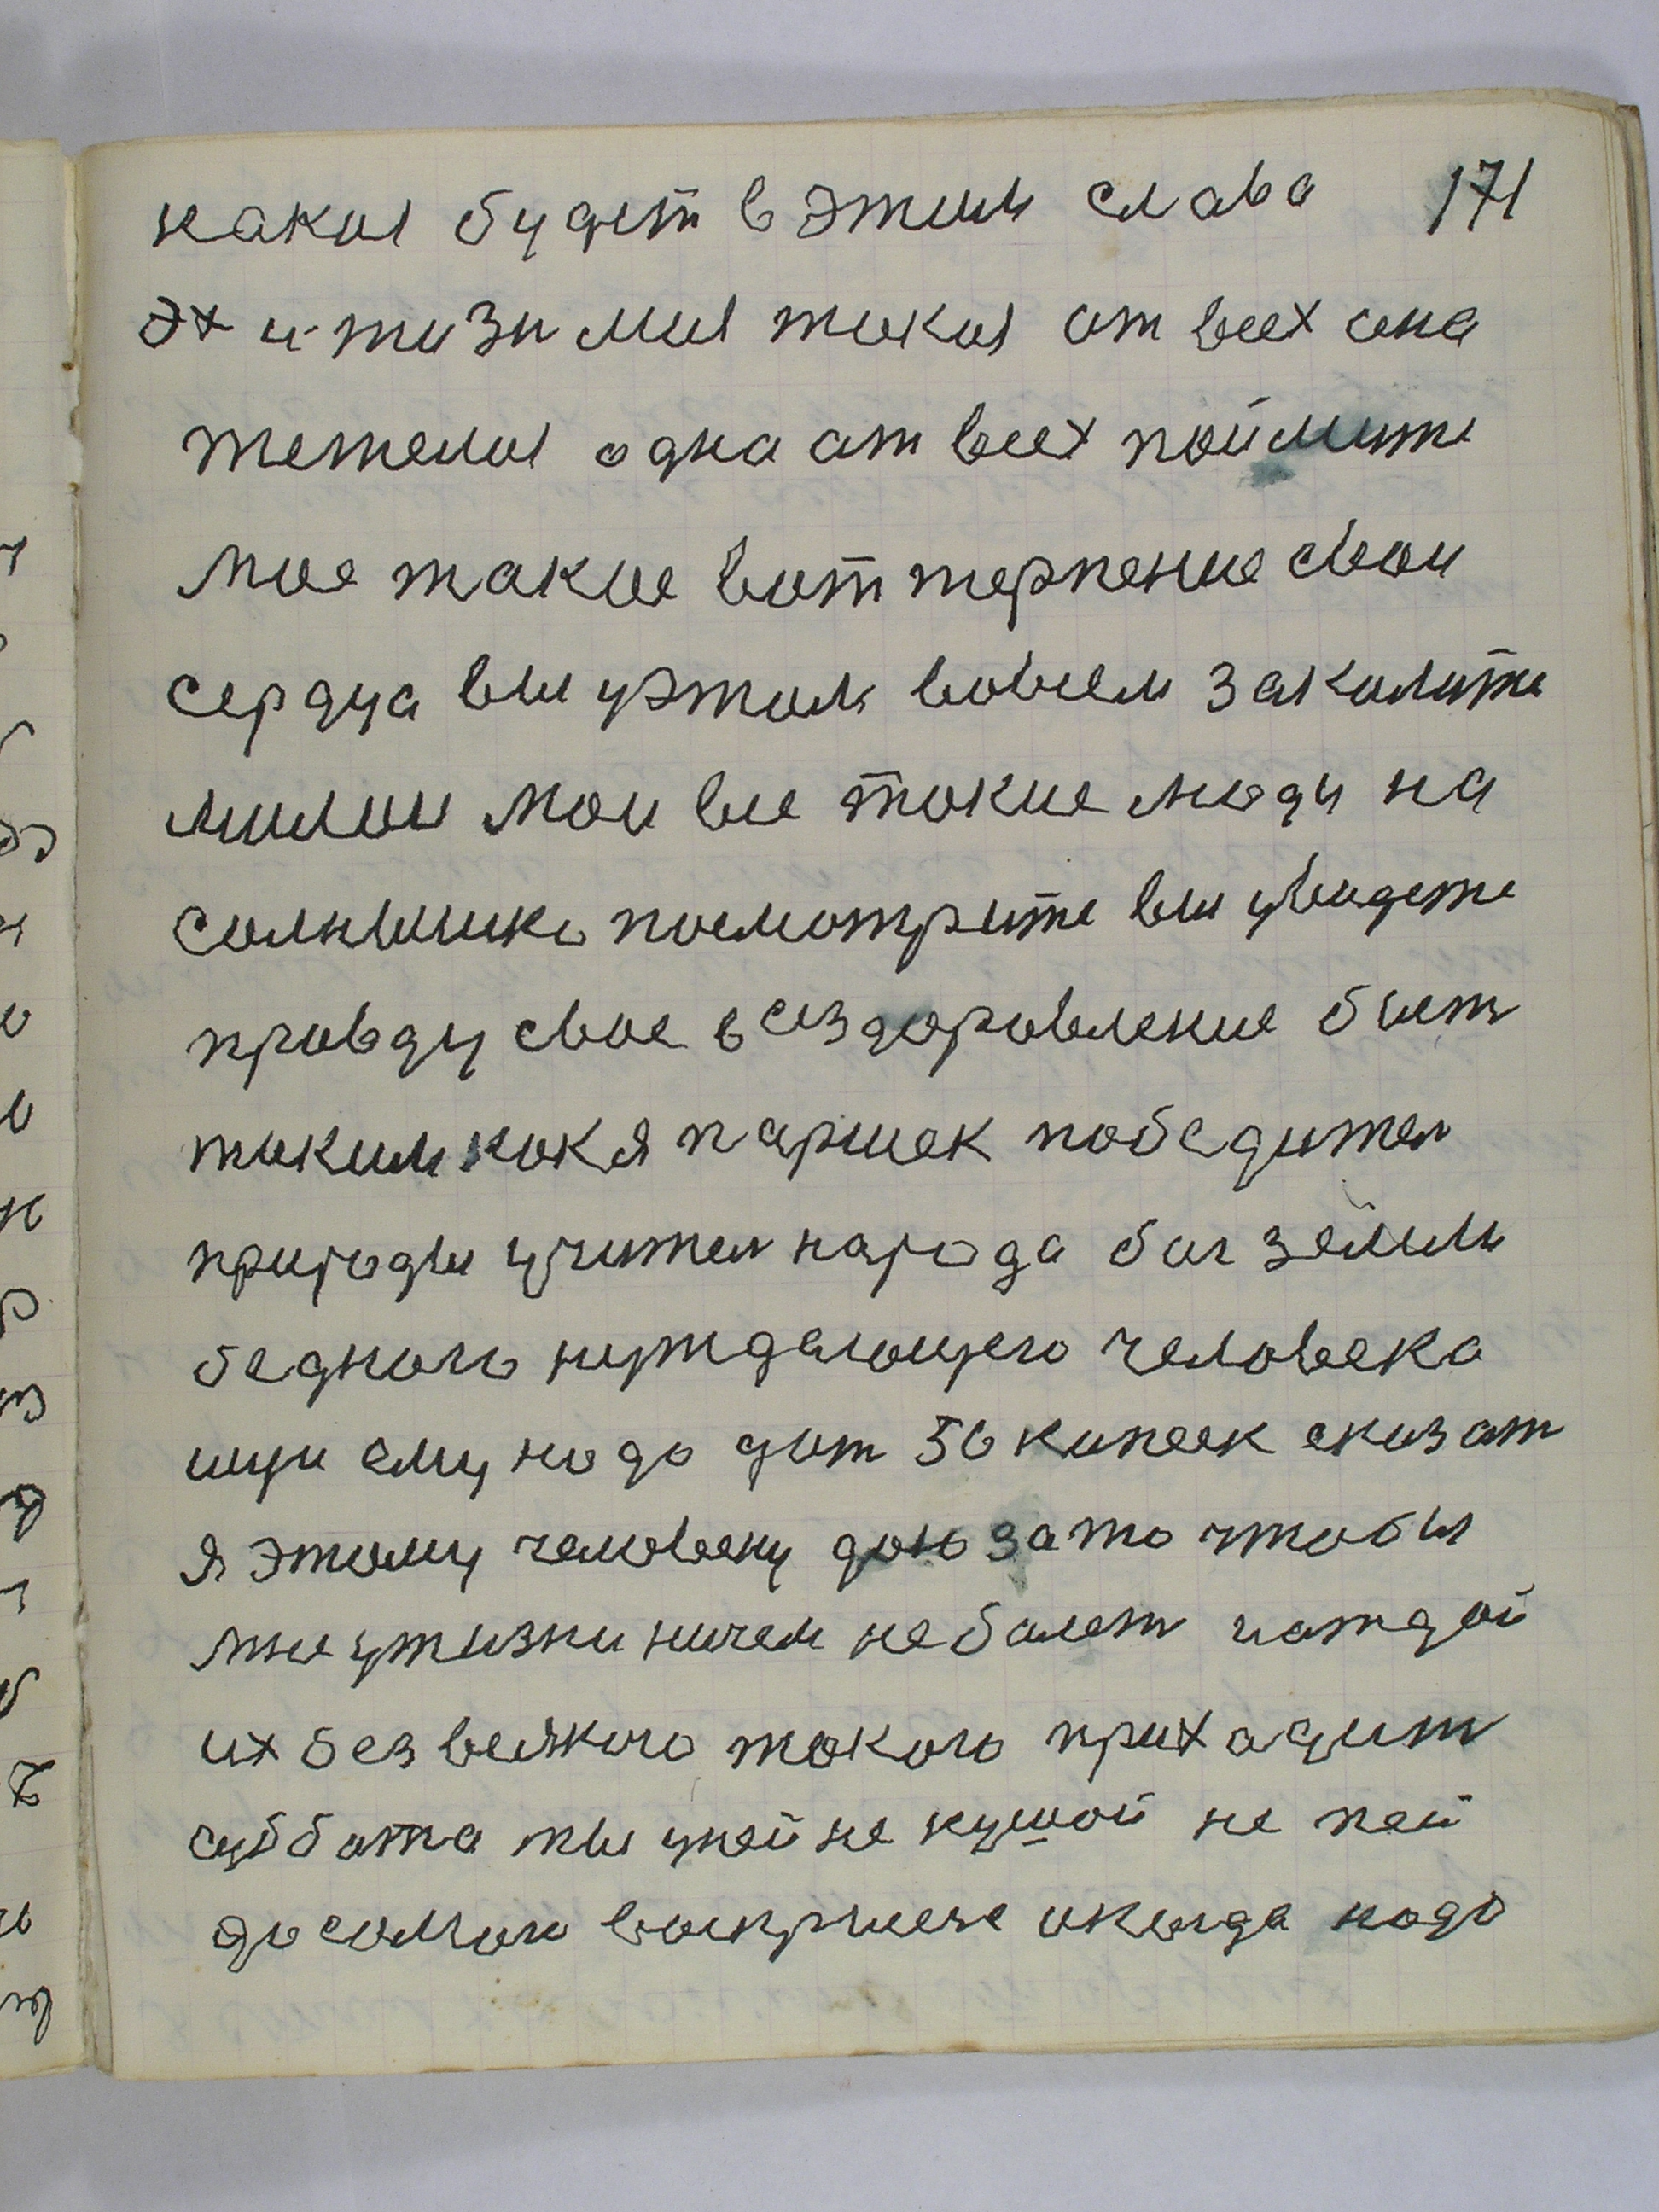 какоя будет в этим слава 171
эх и тизн моя такоя от всех она
тежелоя одна от всех поймите
мое такое вот терпение свои
сердца вы уэтом вовсем заколите
милои мои все токие люди на
солнышико посмотрите вы увидете
провду свое всездоровление быть
таким как я паршек победител
природы учител народа бог земли
бедного нуждающего человека
ищи ему надо дот 50 копеек сказат
я этому человеку даю зато чтобы
мне ужизни ничем неболет иаждой
их без всякого токого приходит
суббота ты уней не кушой не пей
до самого воскриесе икогда надо